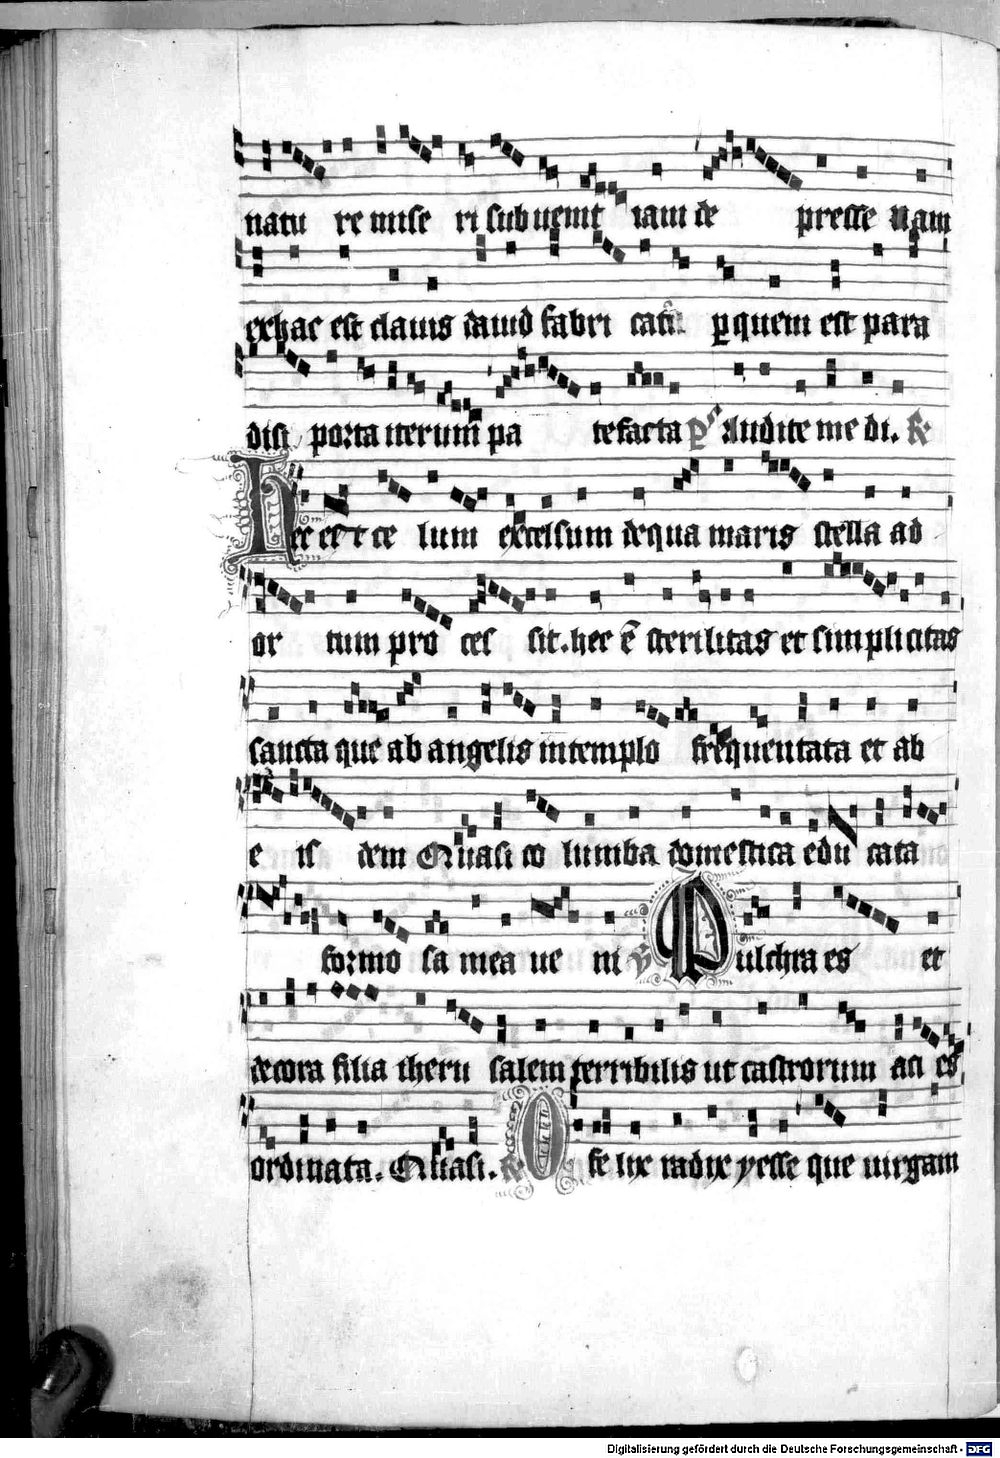 natu re mise ri subuenit iam de presse nam
exhac est clauis dauid fabri cat᷑ ꝑquem est para
disi porta iterum pa tefacta Ps Audite me di. ℟
Hec est ce lum excelsum dequa maris stella ad
or tum pro ces sit. hec ē sterilitas et simplicitas
sancta que ab angelis intemplo frequentata et ab
e is dem Quasi co lumba domestica edu cata
formo sa mea ue ni ℣ Pulchra es et
decora filia iheru salem terribilis ut castrorum aci es
ordinata. Quasi. ℟ O fe lix radix yesse que uirgam
Digitalisierung gefördert durch die Deutsche Forschungsgemeinschaft - DFG